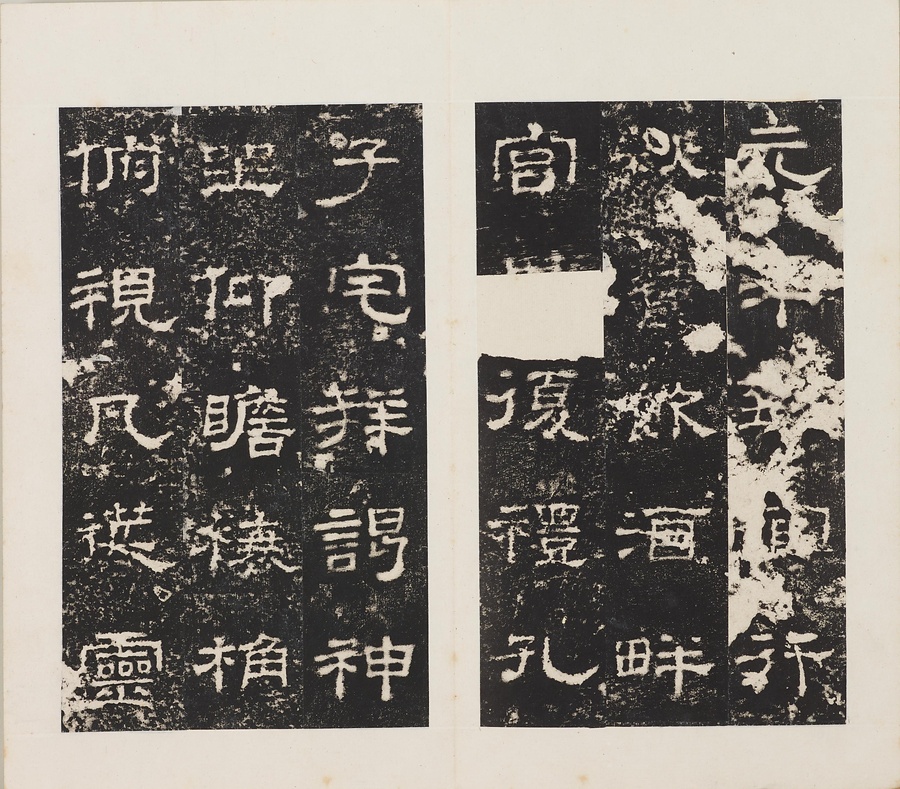 元到官行
秋饗飲酒畔
宮復禮孔
子宅拜謁神
坐仰瞻榱桷
俯視几筵靈